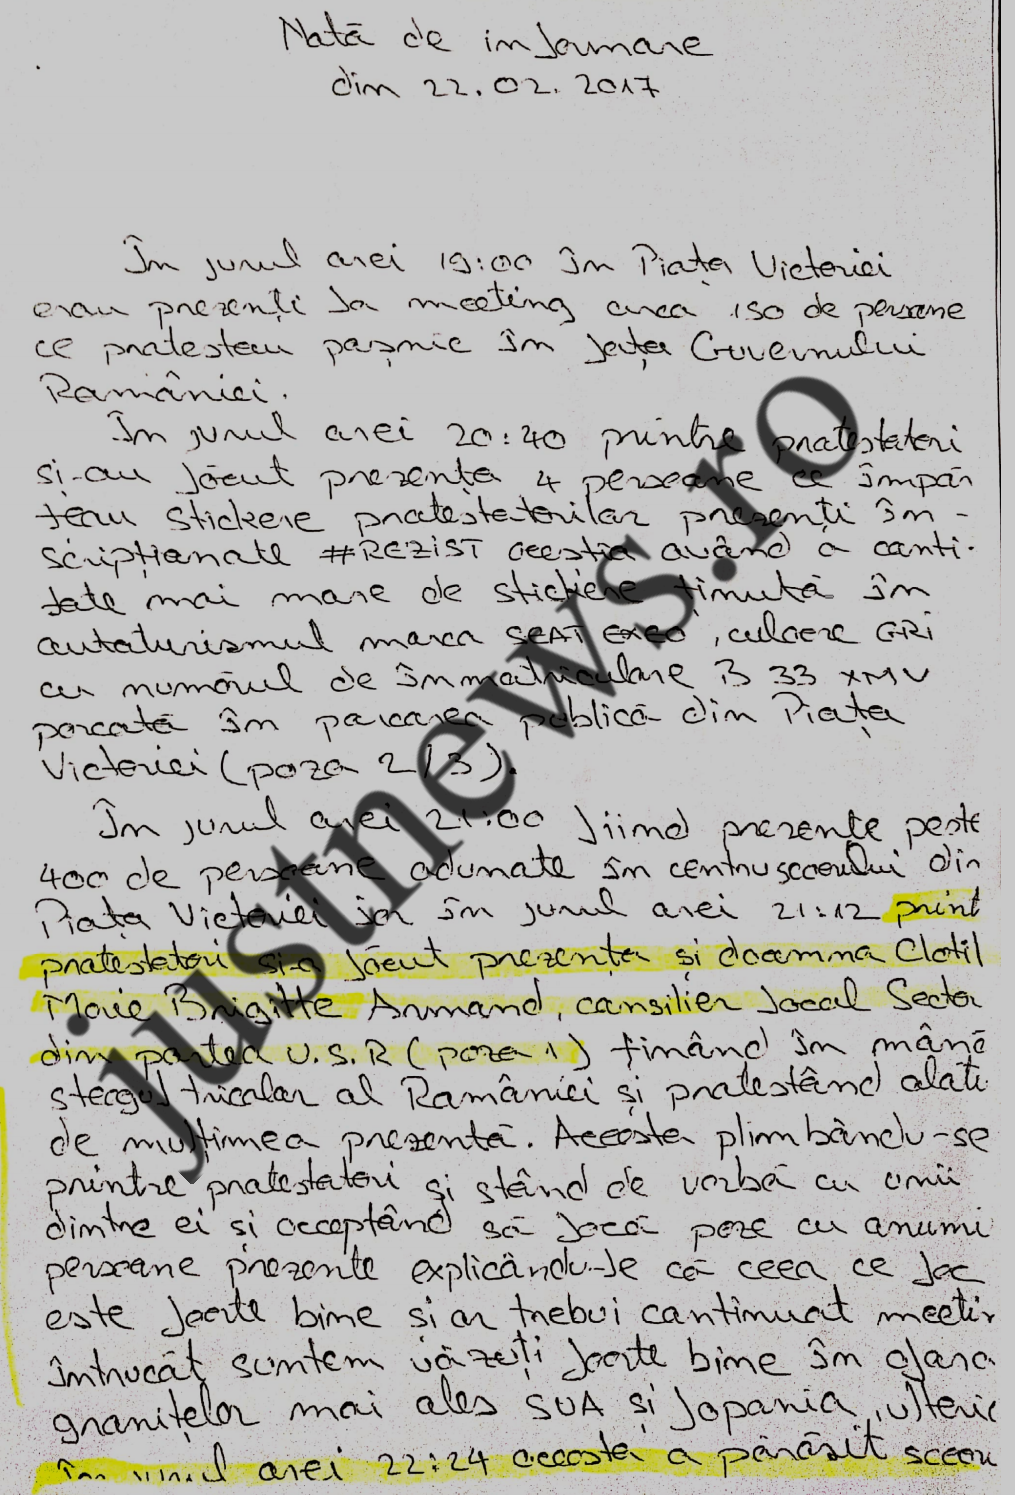 Notă de informare
din 22.02.2017
În jurul orei 19:00 în Piața Victoriei
erau prezenți la meeting circa 150 de persoane
ce protestau pașnic în fața Guvernului
României.
În jurul orei 20:40 printre protestatari
și-au făcut prezența 4 persoane ce împăr
țeau stickere protestatarilor prezenți în-
scripționate #REZIST aceștia având o canti-
tate mai mare de stickere ținută în
autoturismul marca SEAT EXEO, culoare GRi
cu numărul de înmatriculare B 33 XMV
parcată în parcarea publică din Piața
Victoriei (poza 2/3).
În jurul orei 21:00 fiind prezente peste
400 de persoane adunate în centru scuarului din
Piața Victoriei iar în jurul orei 21:12 print
protestatari și-a făcut prezența și doamna Clotil
Marie Brigitte Armand, consilier local Sector
din partea U.S.R (poza 1) ținând în mână
steagul tricolor al României și protestând alătu
de mulțimea prezentă. Aceasta plimbându-se
printre protestatari și stând de vorbă cu unii
dintre ei și acceptând să facă poze cu anumi
persoane prezente explicându-le că ceea ce fac
este foarte bine și ar trebui continuat meetin
întrucât suntem văzuți foarte bine în afara
granițelor mai ales SUA și Japonia, ulterio
în jurul orei 22:24 aceasta a părăsit scuaru
justnews.ro